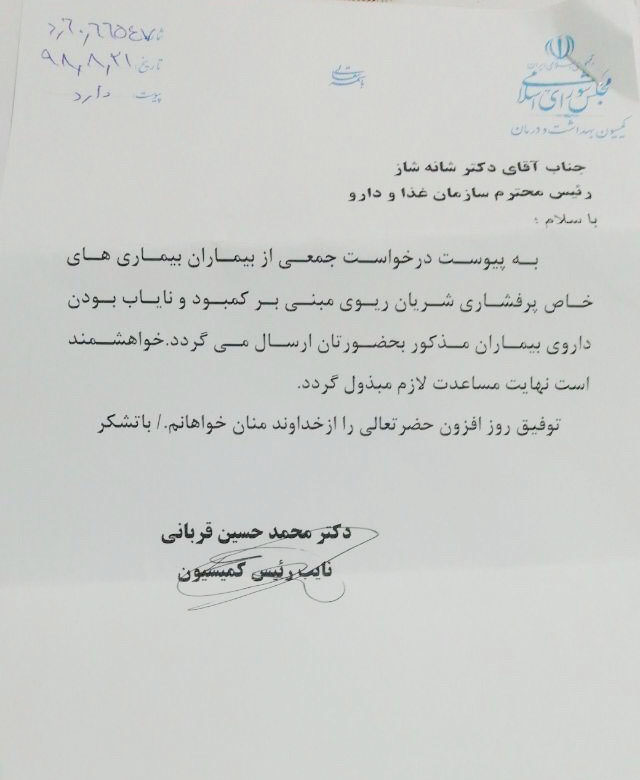 جمهوری اسلامی ایران
مجلس شورای اسلامی
کمیسیون بهداشت و درمان
باسمه تعالی
تاریخ: ۹۸,۸,۲۱
پیوست: دارد
جناب آقای دکتر شانه شاز
رئیس محترم سازمان غذا و دارو
با سلام ؛
به پیوست درخواست جمعی از بیماران بیماری های
خاص پرفشاری شریان ریوی مبنی بر کمبود و نایاب بودن
داروی بیماران مذکور بحضورتان ارسال می گردد.خواهشمند
است نهایت مساعدت لازم مبذول گردد.
توفیق روز افزون حضرتعالی را ازخداوند منان خواهانم./ باتشکر
دکتر محمد حسین قربانی
نایب رئیس کمیسیون